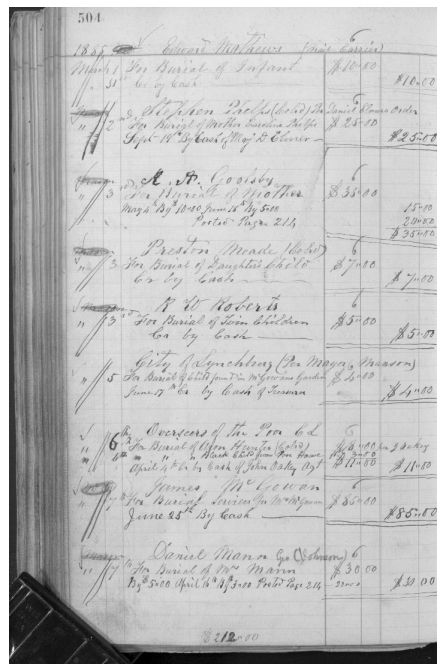 504
1885 Edward Mathews (Mail Carrier) 6
March 1 For Burial of Infant $10=00
" 31st Cr by Cash $10=00
Stephen Phelps (Col'd) Per Daniel Order
" 2nd For Burial of Mother Phelps $25=00
Sept 18th By Cash of May D $25=00
A. A. Goolsby 6
" 3 For Burial of Mother $35=00
May 4th By 10=00 June 25th By 5=00 15=00
Posted Page 214 20=00
$35=00
Preston Meade (Col'd) 6
" 3 For Burial of Daughter's Child $7=00
Cr by Cash $7=00
R W Roberts 6
" 3rd For Burial of Twin Children $5=00
Cr by Cash $5=00
City of Lynchburg (Per Mayor Manson)
" 5 For Burial of Child found in McGowans Garden $4=00
June 17 Cr by Cash of Treasurer $4=00
Overseers of the Poor
" 6th For Burial of Hunter (Col'd)
" " " Black Child from Poor House
April 4th Cr by Cash of John Oakey Agt $11=00 $11=00
James McGowan 6
" 7th For Burial Services for Mrs McGowan $85=00
June 25th By Cash $85=00
Daniel Mann (Johnson) 6
" 7th For Burial of Mrs Mann $30=00
By 5=00 April 16th By 3=00 Posted Page 214 22=00 $30=00
$212=00